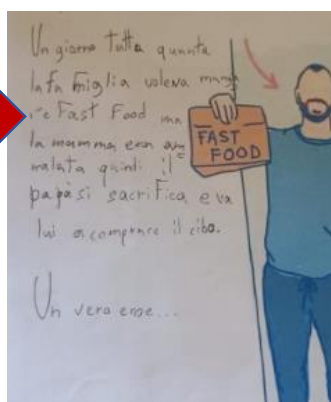 Un giorno tutta quanta
la fa miglia voleva mang
re Fast Food ma
la mamma era am
malata quindi il
papà si sacrifica e va
lui a comprare il cibo.
Un vero eroe...
FAST
FOOD